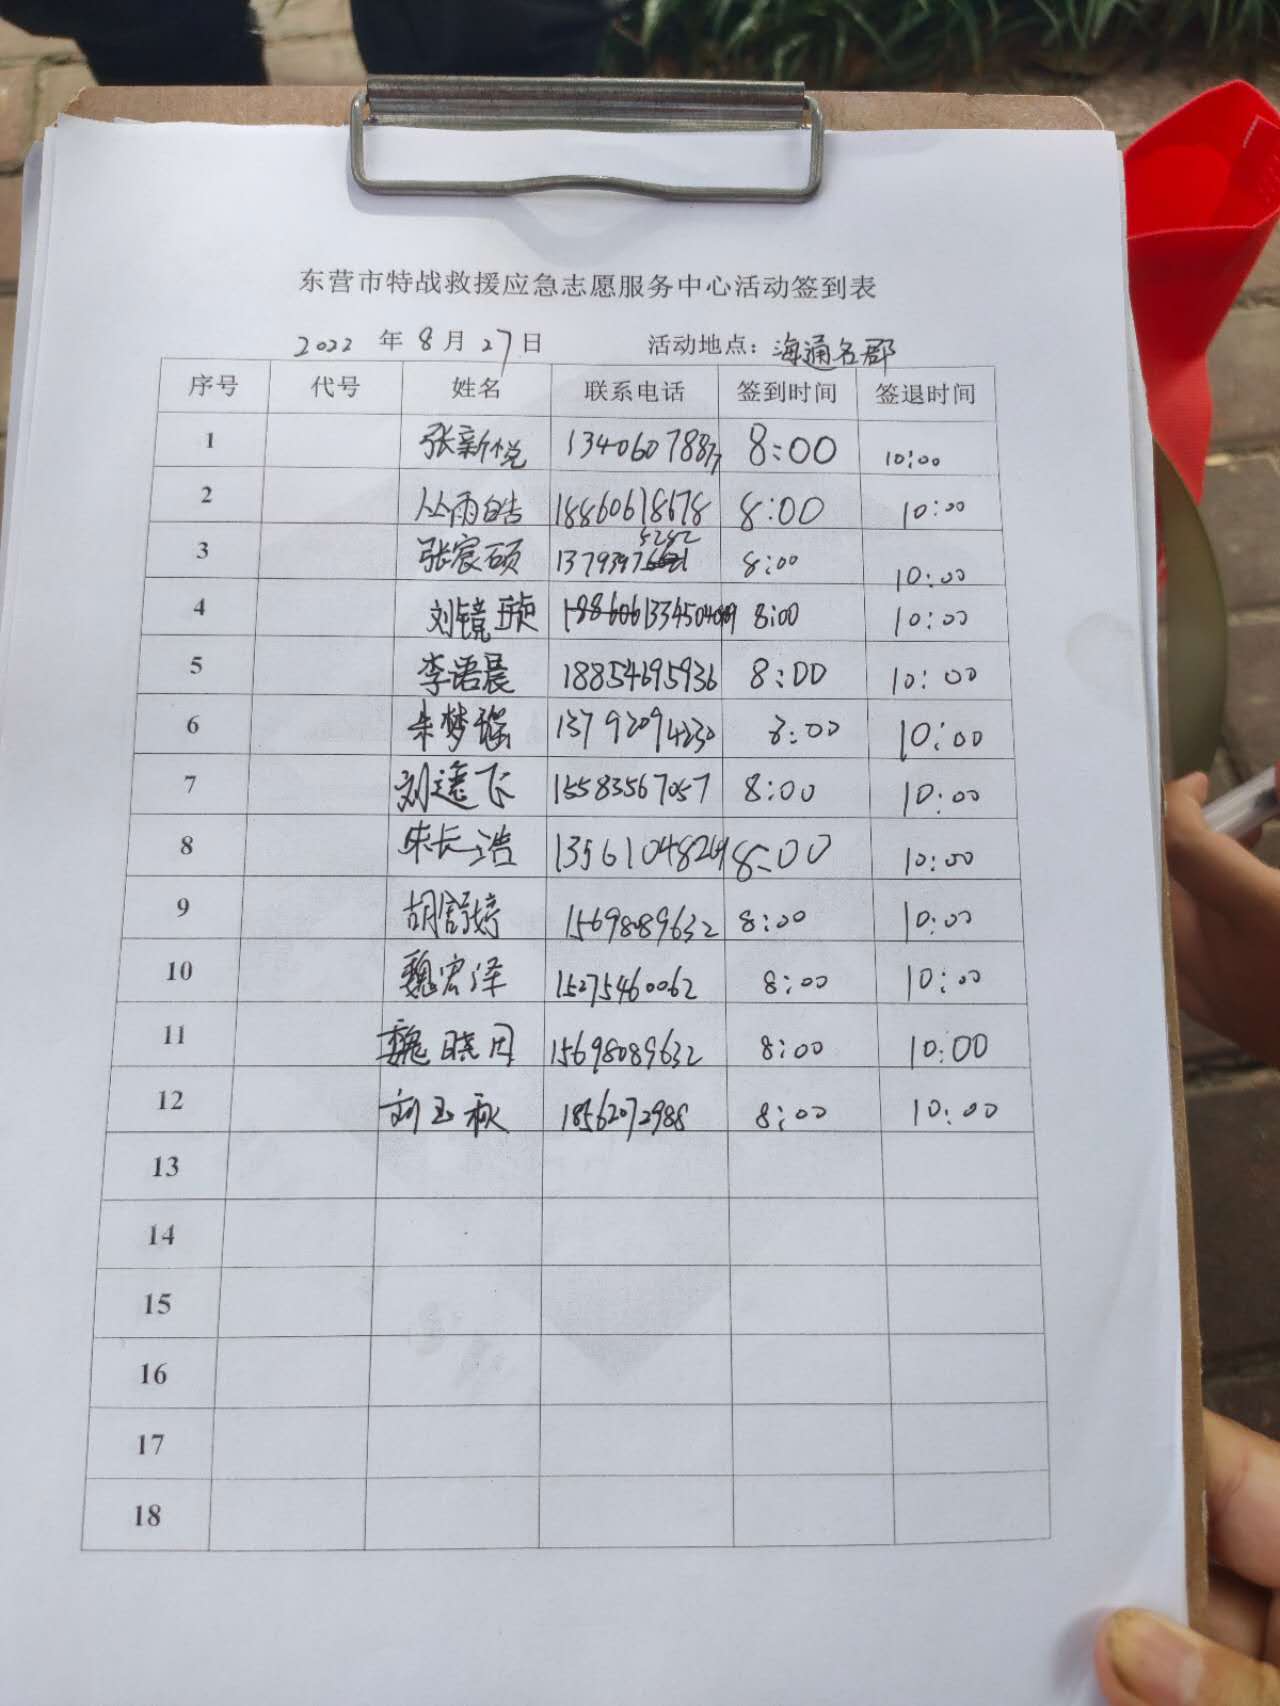 东营市特战救援应急志愿服务中心活动签到表
2022 年 8 月 27 日 活动地点：海通名郡
序号 代号 姓名 联系电话 签到时间 签退时间
1 张新悦 13406078877 8:00 10:00
2 丛雨皓 18860618678 8:00 10:00
3 张宸硕 13793975252 8:00 10:00
4 刘镜 8:00 10:00
5 李语晨 18854695936 8:00 10:00
6 朱梦瑶 13792094230 8:00 10:00
7 刘逸飞 15583567057 8:00 10:00
8 宋长浩 8:00 10:00
9 胡舒婷 15698089632 8:00 10:00
10 魏宏泽 15275460062 8:00 10:00
11 魏晓 15698089632 8:00 10:00
12 刘玉秋 18562072988 8:00 10:00
13
14
15
16
17
18